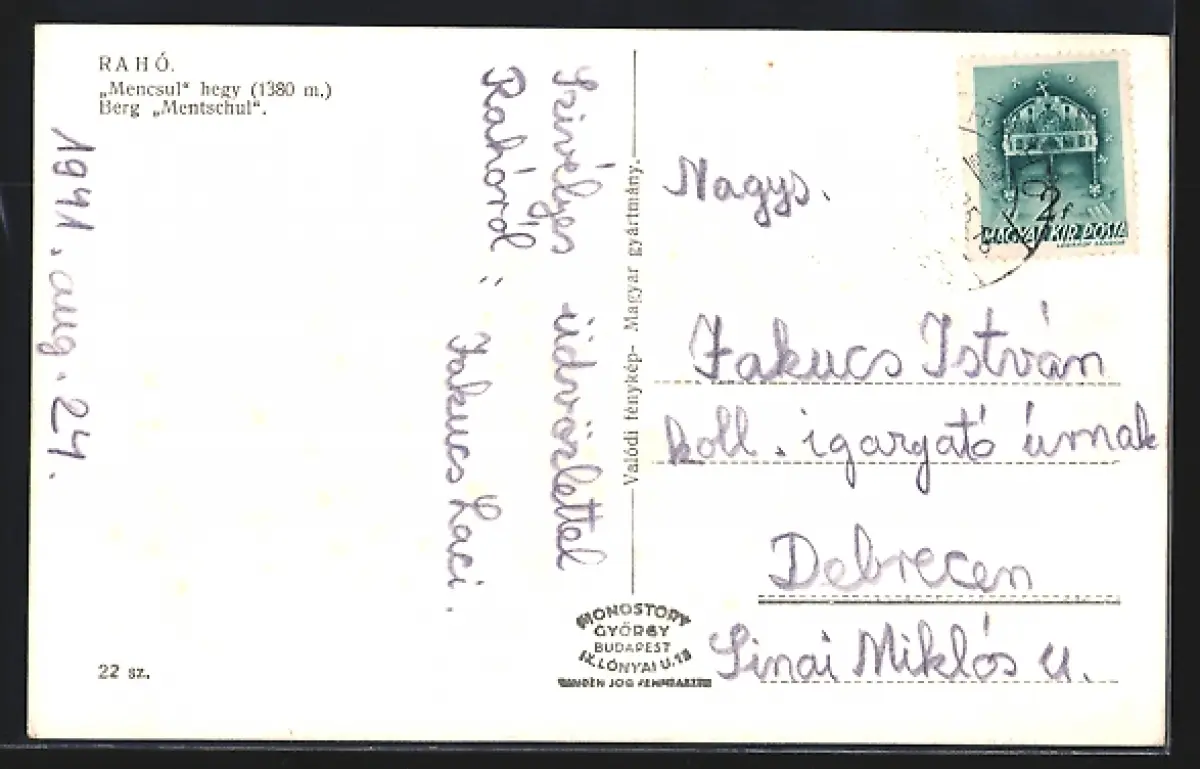 RAHÓ.
„Mencsul“ hegy (1380 m.)
Berg „Mentschul“.
1941. aug. 24.
Szívélyes üdvözlettel
Rahóról:
Jakucs Laci.
22 sz.
Valódi fénykép- Magyar gyártmány.
MONOSTORY
GYÖRGY
BUDAPEST
IX. LÓNYAI U. 13
MINDEN JOG FENNTARTVA
MAGYAR KIR. POSTA
2
Nagys.
Jakucs István
koll. igazgató úrnak
Debrecen
Sinai Miklós u.